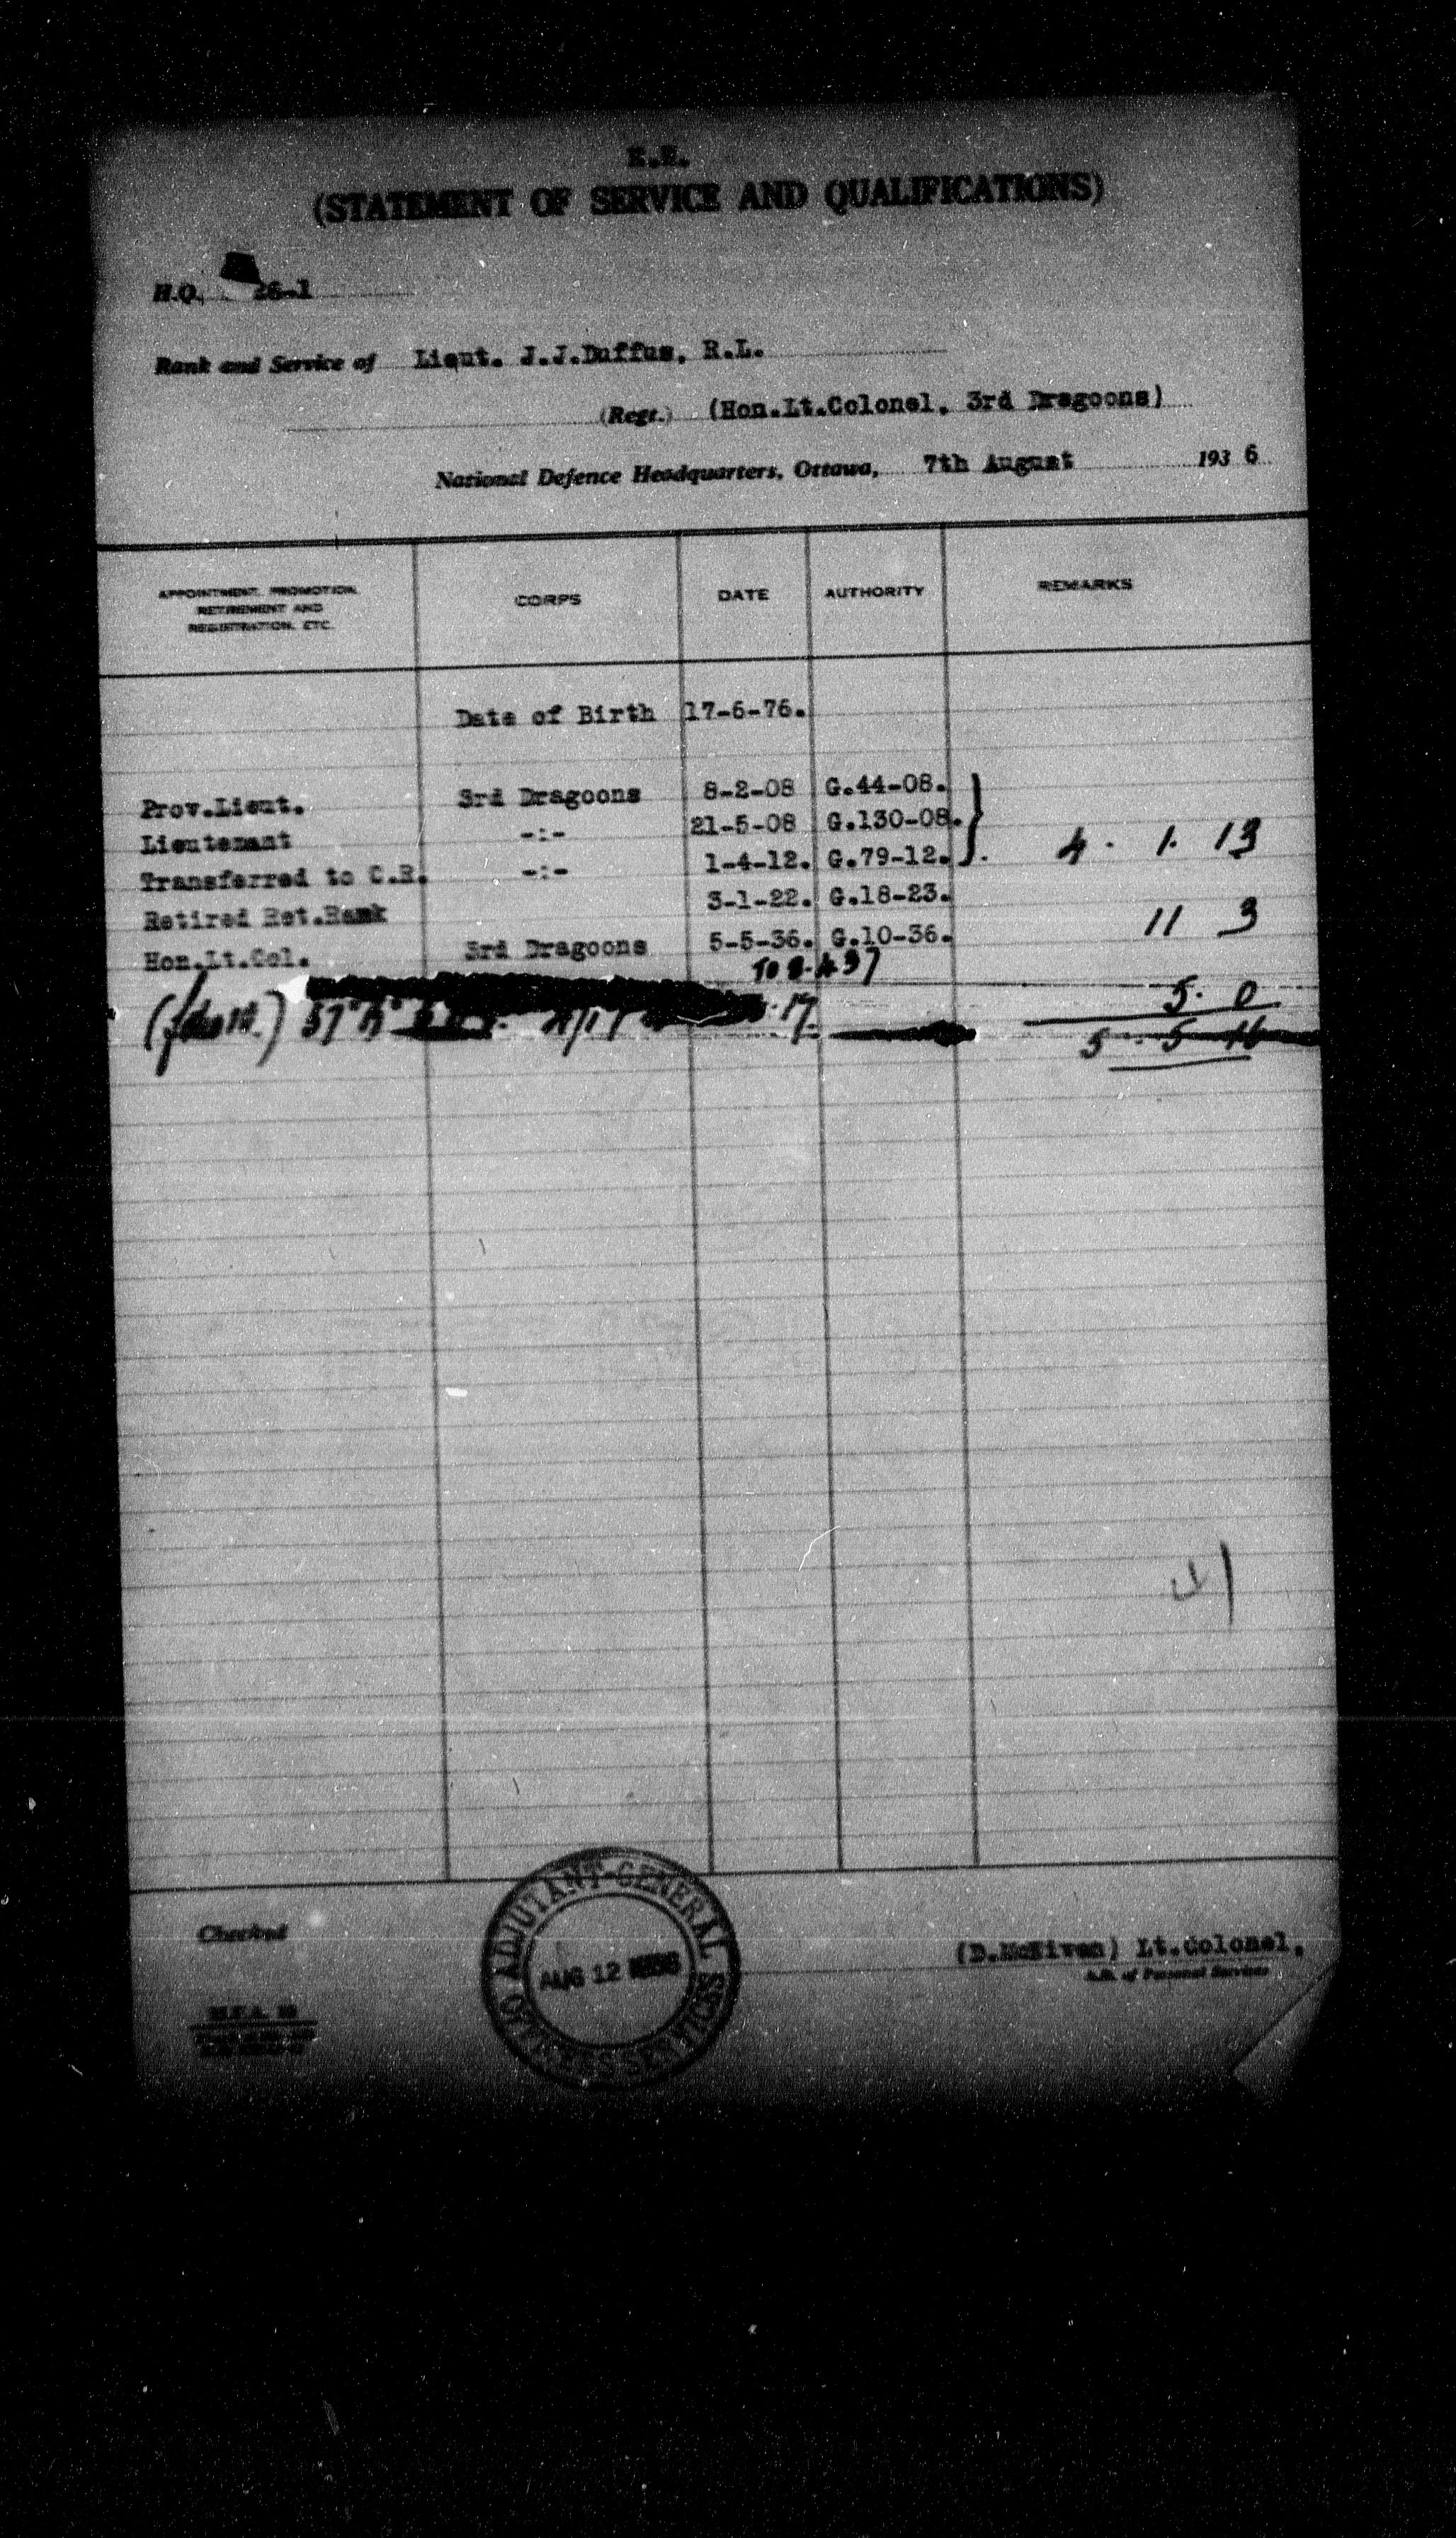 (STATEMENT OF SERVICE AND QUALIFICATIONS)
H.Q. 26-1
Rank and Service of Lieut. J.J.Duffus, R.L.
(Regt.) (Hon.Lt.Colonel, 3rd Dragoons)
National Defence Headquarters, Ottawa, 7th August 1936
APPOINTMENT, PROMOTION, RETIREMENT AND REGISTRATION, ETC. CORPS DATE AUTHORITY REMARKS
Date of Birth 17-6-76.
Prov.Lieut. 3rd Dragoons 8-2-08 G.44-08.
Lieutenant -:- 21-5-08 G.130-08.
Transferred to C.R. -:- 1-4-12. G.79-12. 4. 1. 13
Retired Ret.Rank 3-1-22. G.18-23.
Hon.Lt.Col. 3rd Dragoons 5-5-36. G.10-36. 11 3
To 8.4.37
5. 0
5. 5 16
Checked
ADJUTANT-GENERAL
AUG 12 1936
(D.McNiven) Lt.Colonel,
A.D. of Personal Services